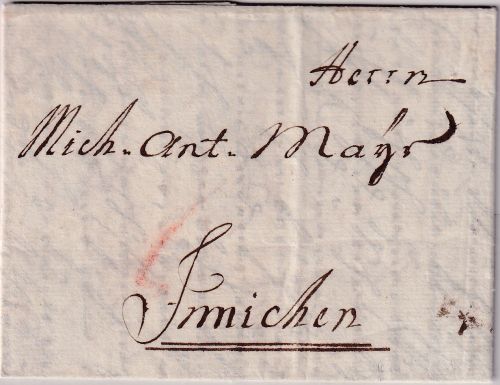 Herrn
Mich. Ant. Mayr
Innichen